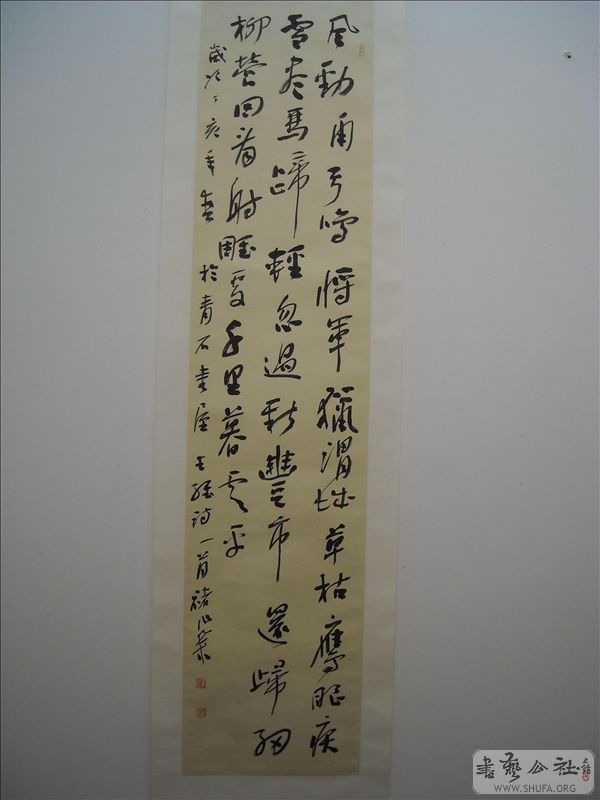 風勁角弓鳴將軍獵渭城草枯鷹眼疾
雪尽馬蹄輕忽過新豐市還歸細
柳營回看射雕處千里暮雲平
歲次丁亥年春於青石書屋王維詩一首
書藝公社
WWW.SHUFA.ORG